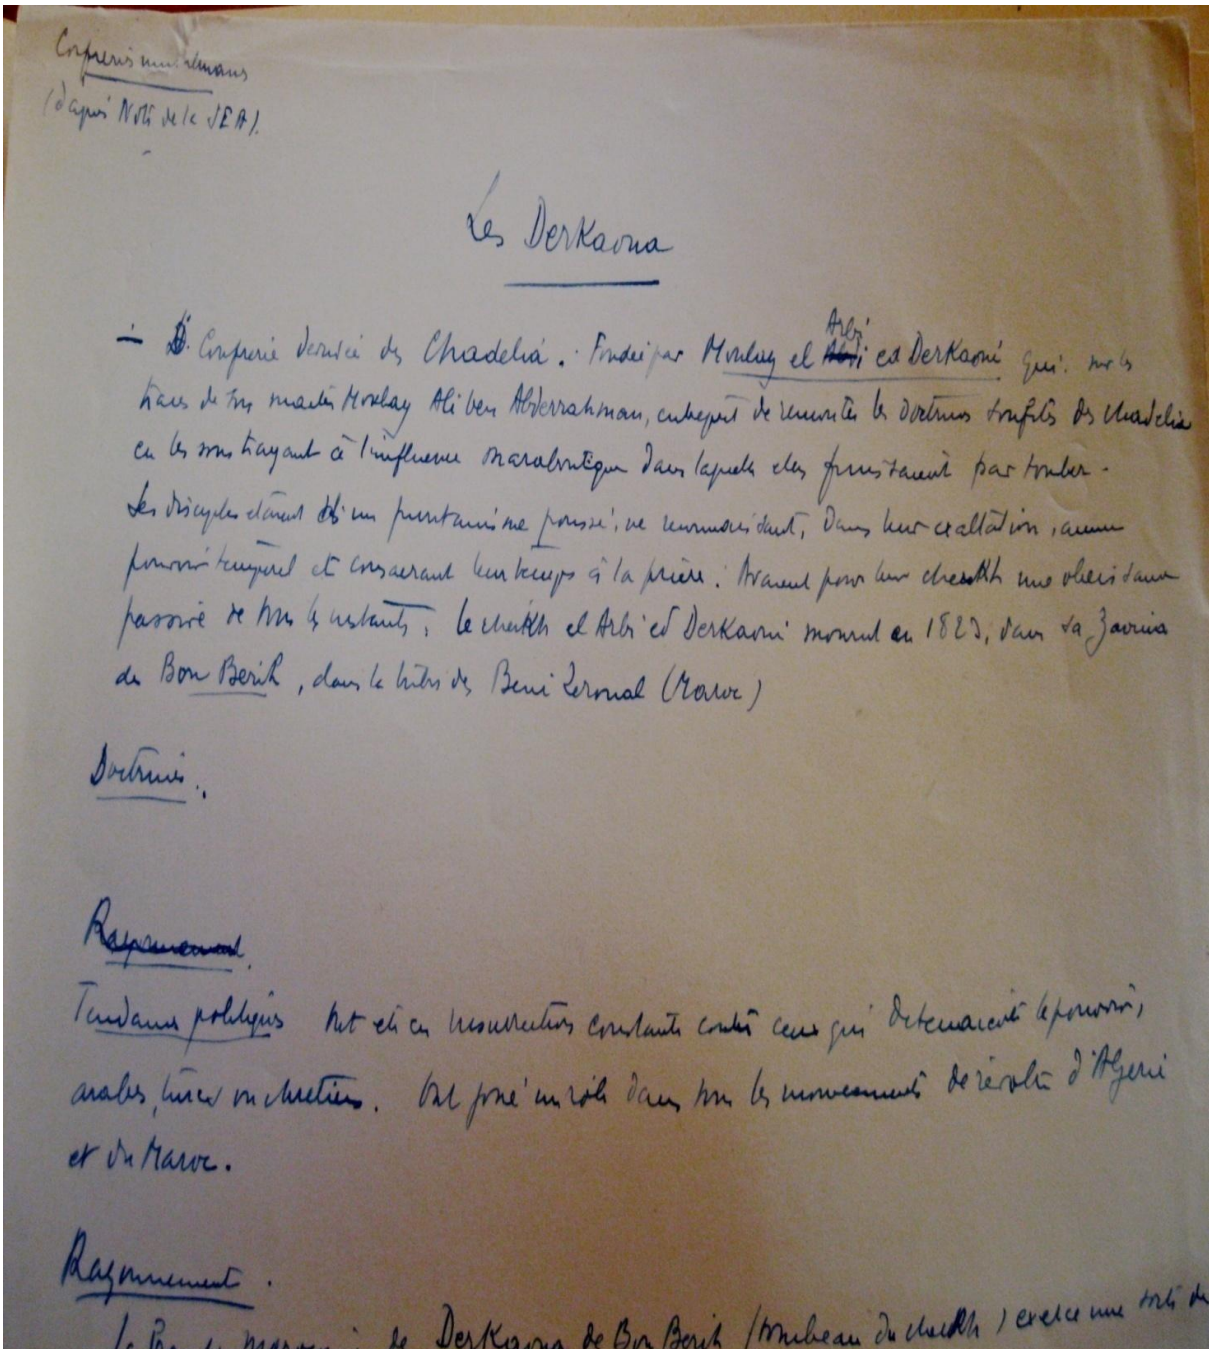 Confréries musulmanes
(d'après Note de la SEA).
Les Derkaoua
— Confrérie dérivée des Chadelia. Fondée par Moulay el Arbi ed Derkaoui qui. sur les
traces de son maître Moulay Ali ben Abderrahman, entreprit de remonter les doctrines soufites des Chadelia
en les soustrayant à l'influence maraboutique dans laquelle elles finissaient par tomber.
Les disciples étaient d'un puritanisme poussé, ne reconnaissant, dans leur exaltation, aucun
pouvoir temporel et consacrant leur temps à la prière. Avaient pour leur cheikh une obéissance
passive de tous les instants. Le cheikh el Arbi ed Derkaoui mourut en 1823, dans sa Zaouia
de Bou Berih, dans la tribu des Beni Zeroual (Maroc)
Doctrines.
Rayonnement
Tendances politiques Ont été en insurrection constante contre ceux qui détenaient le pouvoir,
arabes, turcs ou chrétiens. Ont joué un rôle dans tous les mouvements de révolte d'Algérie
et du Maroc.
Rayonnement.
de Derkaoua de Bou Berih (tombeau du cheikh) exerce une sorte de